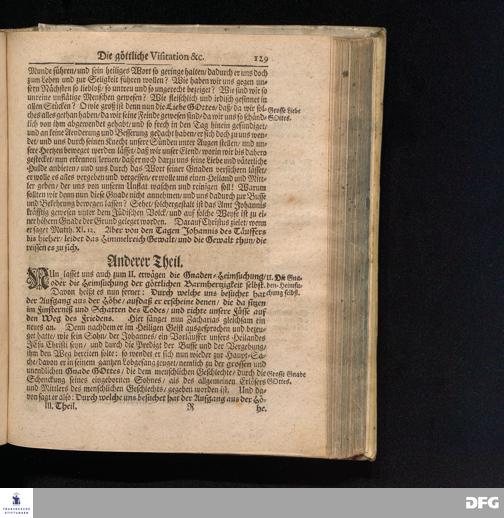 Die göttliche Visitation &c. 129
Munde führen/und sein heiliges Wort so geringe halten/dadurch er uns doch
zum Leben und zur Seligkeit führen wollen? Wie haben wir uns gegen un-
sern Nächsten so liebloß/so untreu und so ungerecht bezeiget? Wie sind wir so
unreine unflätige Menschen gewesen? Wie fleischlich und irdisch gesinnet in
allen Stücken? O wie groß ist denn nun die Liebe GOttes/daß/da wir sol- Grosse Liebe
ches alles gethan haben/da wir seine Feinde gewesen sind/da wir uns so schänd- GOttes.
lich von ihm abgewendet gehabt/und so frech in den Tag hinein gesündiget/
und an keine Aenderung und Besserung gedacht haben/er sich doch zu uns wen-
det/und uns durch seinen Knecht unsere Sünden unter Augen stellen/und un-
sere Hertzen bewegen lässet/daß wir unser Elend/worin wir bis daher
gestecket/nun erkennen lernen/daß er noch darzu uns seine Liebe und väterliche
Hulde anbieten/und uns durch das Wort seiner Gnaden versichern lässet/
er wolle es alles vergeben und vergessen/er wolle uns einen Heiland und Mitt-
ler geben/der uns von unserm Unflat waschen und reinigen soll! Warum
sollten wir denn nun diese Gnade nicht annehmen/und uns dadurch zur Busse
und Bekehrung bewegen lassen? Sehet/solchergestalt ist das Amt Johannis
kräfftig gewesen unter dem Jüdischen Volck/und auf solche Weise ist zu ei-
ner höhern Gnade der Grund geleget worden. Darauf Christus zielet/wenn
er saget Matth. XI. 12. Aber von den Tagen Johannis des Täuffers
bis hieher/leidet das Himmelreich Gewalt/und die Gewalt thun/die
reissen es zu sich.
Anderer Theil.
NUn lasset uns auch zum II. erwägen die Gnaden-Heimsuchung/ II. Die Gna-
oder die Heimsuchung der göttlichen Barmhertzigkeit selbst. den-Heimsu-
Davon heißt es nun ferner: Durch welche uns besuchet hat chung selbst.
der Aufgang aus der Höhe/aufdaß er erscheine denen/die da sitzen
im Finsterniß und Schatten des Todes/und richte unsere Füsse auf
den Weg des Friedens. Hier fänget nun Zacharias gleichsam ein
neues an. Denn nachdem er im Heiligen Geist ausgesprochen und bezeu-
get hatte/wie sein Sohn/der Johannes/ein Vorläuffer unsers Heilandes
JEsu Christi seyn/und durch die Predigt der Busse und der Vergebung/
ihm den Weg bereiten solte: so wendet er sich nun wieder zur Haupt-Sa-
che/davon er in seinem gantzen Lobgesang zeuget/nemlich zu der grossen und
unendlichen Gnade GOttes/die dem menschlichen Geschlechte/durch die Grosse Gnade
Schenckung seines eingebornen Sohnes/als des allgemeinen Erlösers GOttes.
und Mittlers des menschlichen Geschlechts/gegeben worden ist. Und da-
von sagt er also: Durch welche uns besuchet hat der Aufgang aus der Hö-
III. Theil. R he.
FRANCKESCHE
STIFTUNGEN
DFG